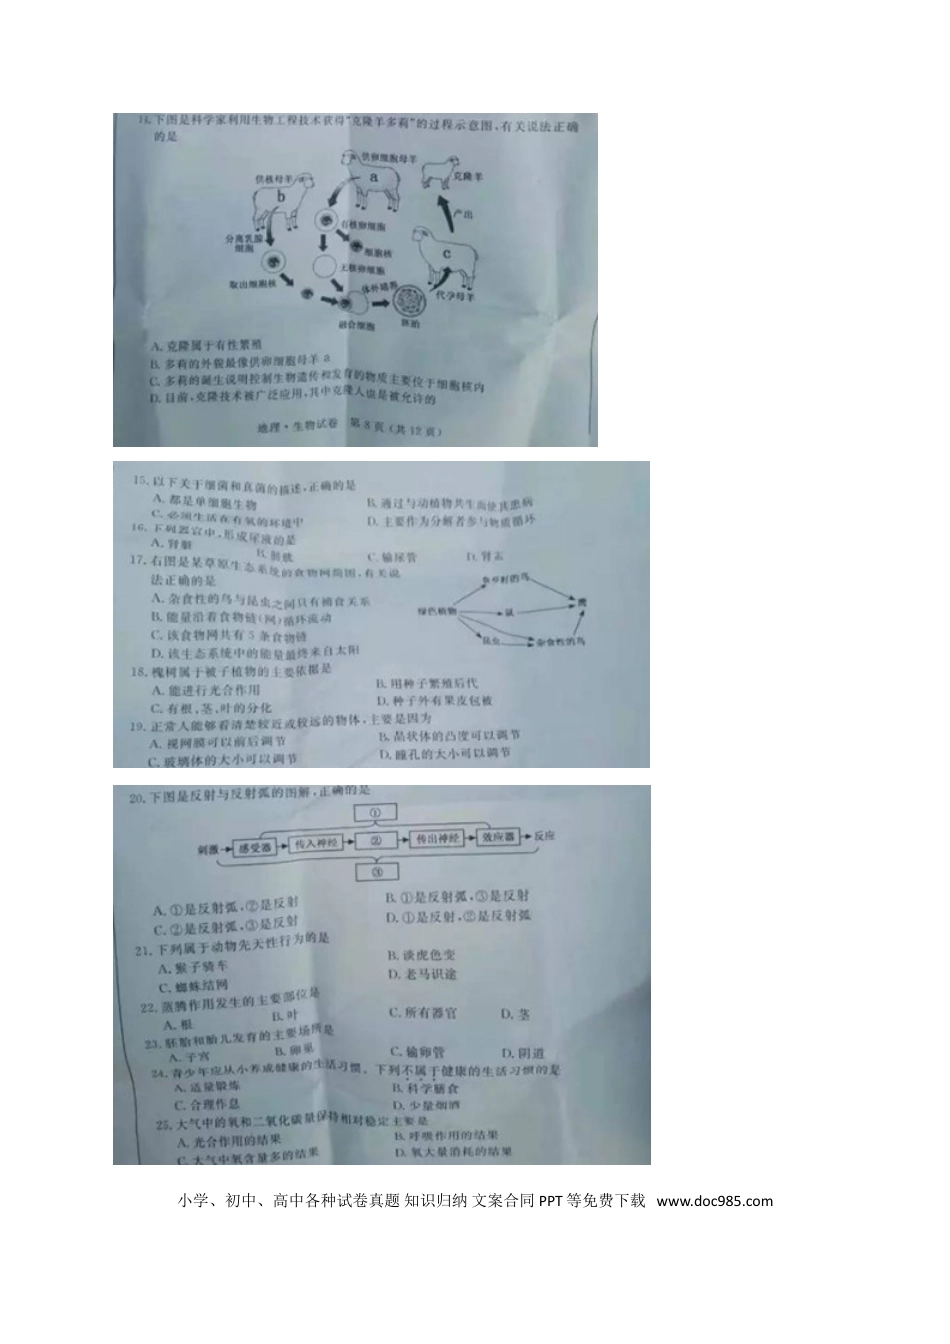 14.下图是科学家利用生物工程技术获得“克隆羊多莉”的过程示意图,有关说法正确
的是
供卵细胞母羊
克隆羊
供核母羊
a
b
产出
有核卵细胞
分离乳腺
细胞
细胞核
c
无核卵细胞
取出细胞核
体外培养
代孕母羊
融合细胞
胚胎
A.克隆属于有性繁殖
B.多莉的外貌最像供卵细胞母羊a
C.多莉的诞生说明控制生物遗传和发育的物质主要位于细胞核内
D.目前,克隆技术被广泛应用,其中克隆人也是被允许的
地理·生物试卷 第8页(共12页)
15.以下关于细菌和真菌的描述,正确的是
A.都是单细胞生物
B.通过与动植物共生而使其患病
C.必须生活在有氧的环境中
D.主要作为分解者参与物质循环
16.下列器官中,形成尿液的是
A.肾脏 B.膀胱 C.输尿管 D.肾盂
17.右图是某草原生态系统的食物网简图,有关说
法正确的是
食草籽的鸟
绿色植物 鼠 鹰
昆虫 杂食性的鸟
A.杂食性的鸟与昆虫之间只有捕食关系
B.能量沿着食物链(网)循环流动
C.该食物网共有5条食物链
D.该生态系统中的能量最终来自太阳
18.槐树属于被子植物的主要依据是
A.能进行光合作用 B.用种子繁殖后代
C.有根、茎、叶的分化 D.种子外有果皮包被
19.正常人能够看清楚较近或较远的物体,主要是因为
A.视网膜可以前后调节 B.晶状体的凸度可以调节
C.玻璃体的大小可以调节 D.瞳孔的大小可以调节
20.下图是反射与反射弧的图解,正确的是
①
刺激 感受器 传入神经 ② 传出神经 效应器 反应
③
A.①是反射弧,②是反射 B.①是反射弧,③是反射
C.②是反射弧,③是反射 D.①是反射,②是反射弧
21.下列属于动物先天性行为的是
A.猴子骑车 B.谈虎色变
C.蜘蛛结网 D.老马识途
22.蒸腾作用发生的主要部位是
A.根 B.叶 C.所有器官 D.茎
23.胚胎和胎儿发育的主要场所是
A.子宫 B.卵巢 C.输卵管 D.阴道
24.青少年应从小养成健康的生活习惯。下列不属于健康的生活习惯的是
A.适量锻炼 B.科学膳食
C.合理作息 D.少量烟酒
25.大气中的氧和二氧化碳量保持相对稳定主要是
A.光合作用的结果 B.呼吸作用的结果
C.大气中氧含量多的结果 D.氧大量消耗的结果
小学、初中、高中各种试卷真题 知识归纳 文案合同 PPT 等免费下载 www.doc985.com